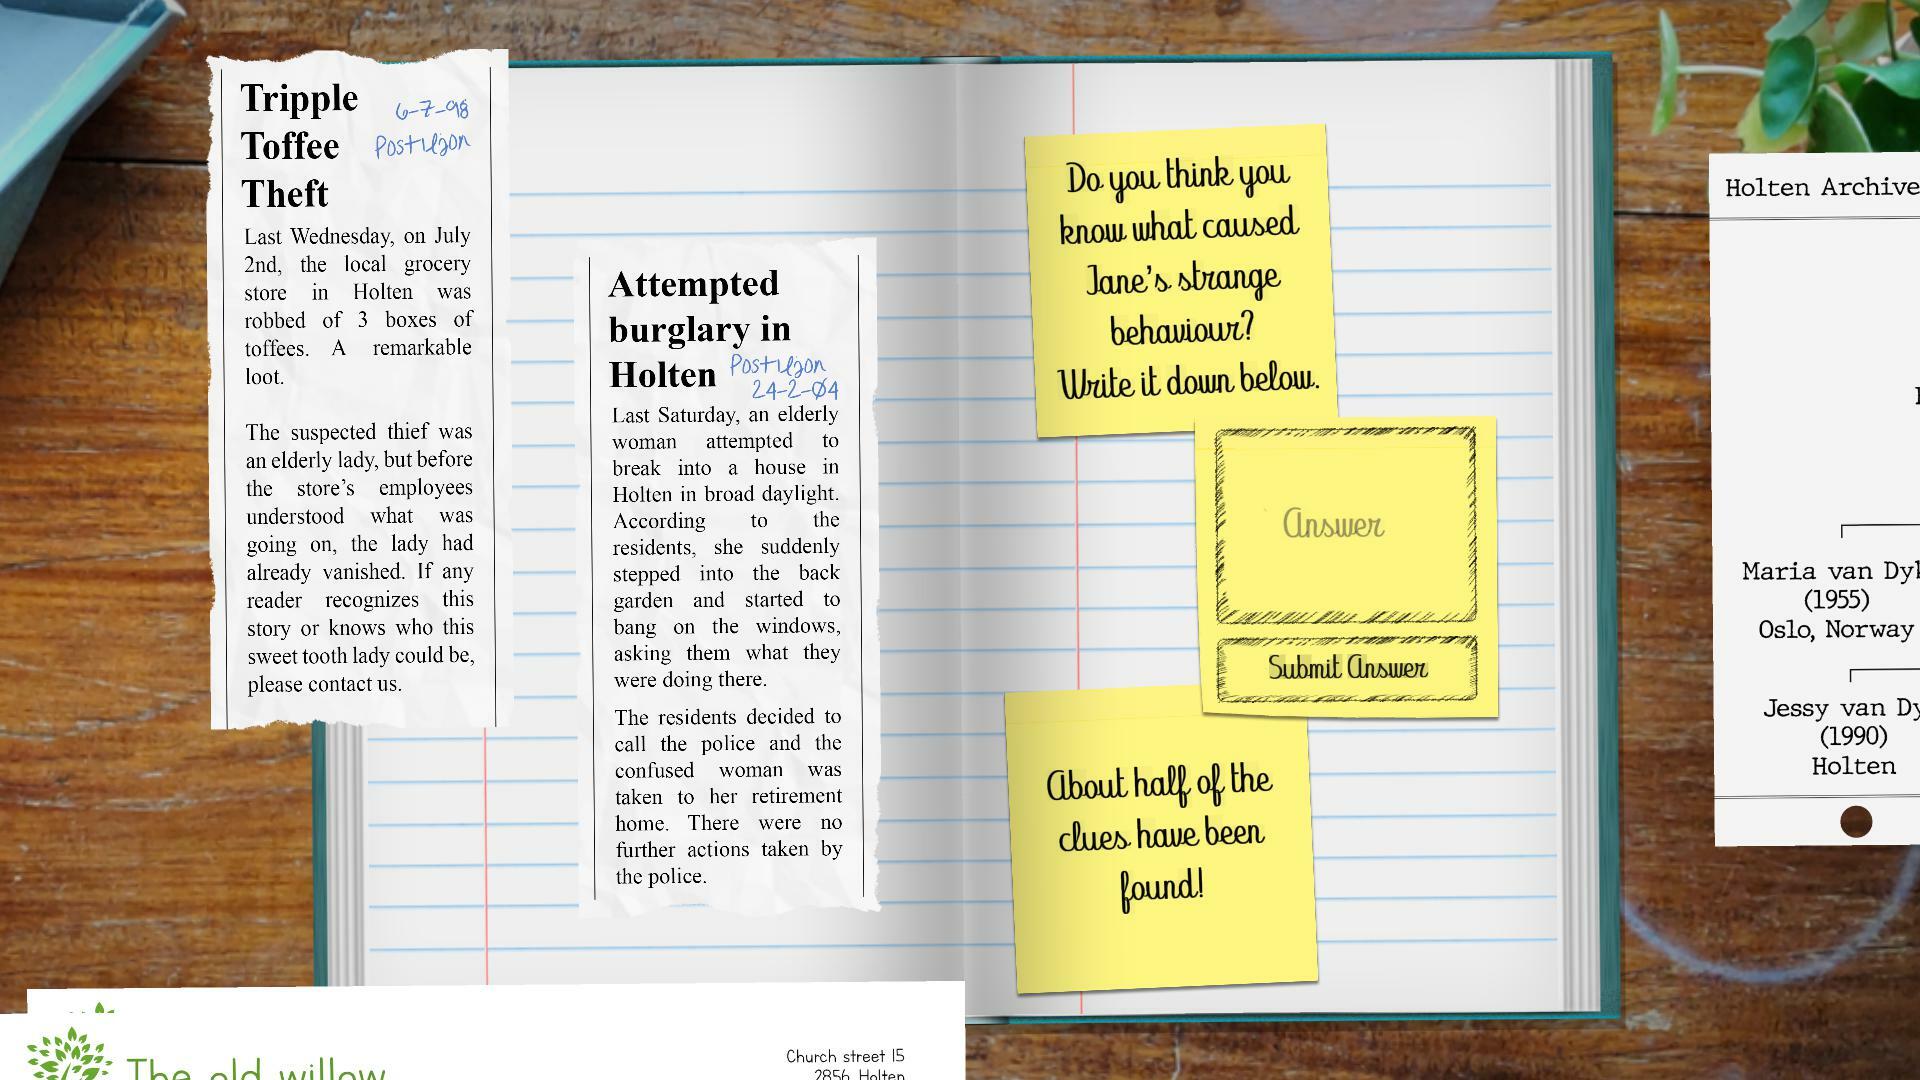 Tripple
Toffee
Theft
6-7-98
Last Wednesday, on July
2nd, the local grocery
store in Holten was
robbed of 3 boxes of
toffees. A remarkable
loot.
The suspected thief was
an elderly lady, but before
the store's employees
understood what was
going on, the lady had
already vanished. If any
reader recognizes this
story or knows who this
sweet tooth lady could be,
please contact us.
Attempted
burglary in
Holten
24-2-04
Last Saturday, an elderly
woman attempted to
break into a house in
Holten in broad daylight.
According to the
residents, she suddenly
stepped into the back
garden and started to
bang on the windows,
asking them what they
were doing there.
The residents decided to
call the police and the
confused woman was
taken to her retirement
home. There were no
further actions taken by
the police.
Do you think you
know what caused
Jane's strange
behaviour?
Write it down below.
Answer
Submit Answer
About half of the
clues have been
found!
Holten Archive
Maria van Dyk
(1955)
Oslo, Norway
Jessy van Dy
(1990)
Holten
The old willow
Church street 15
2856 Holten